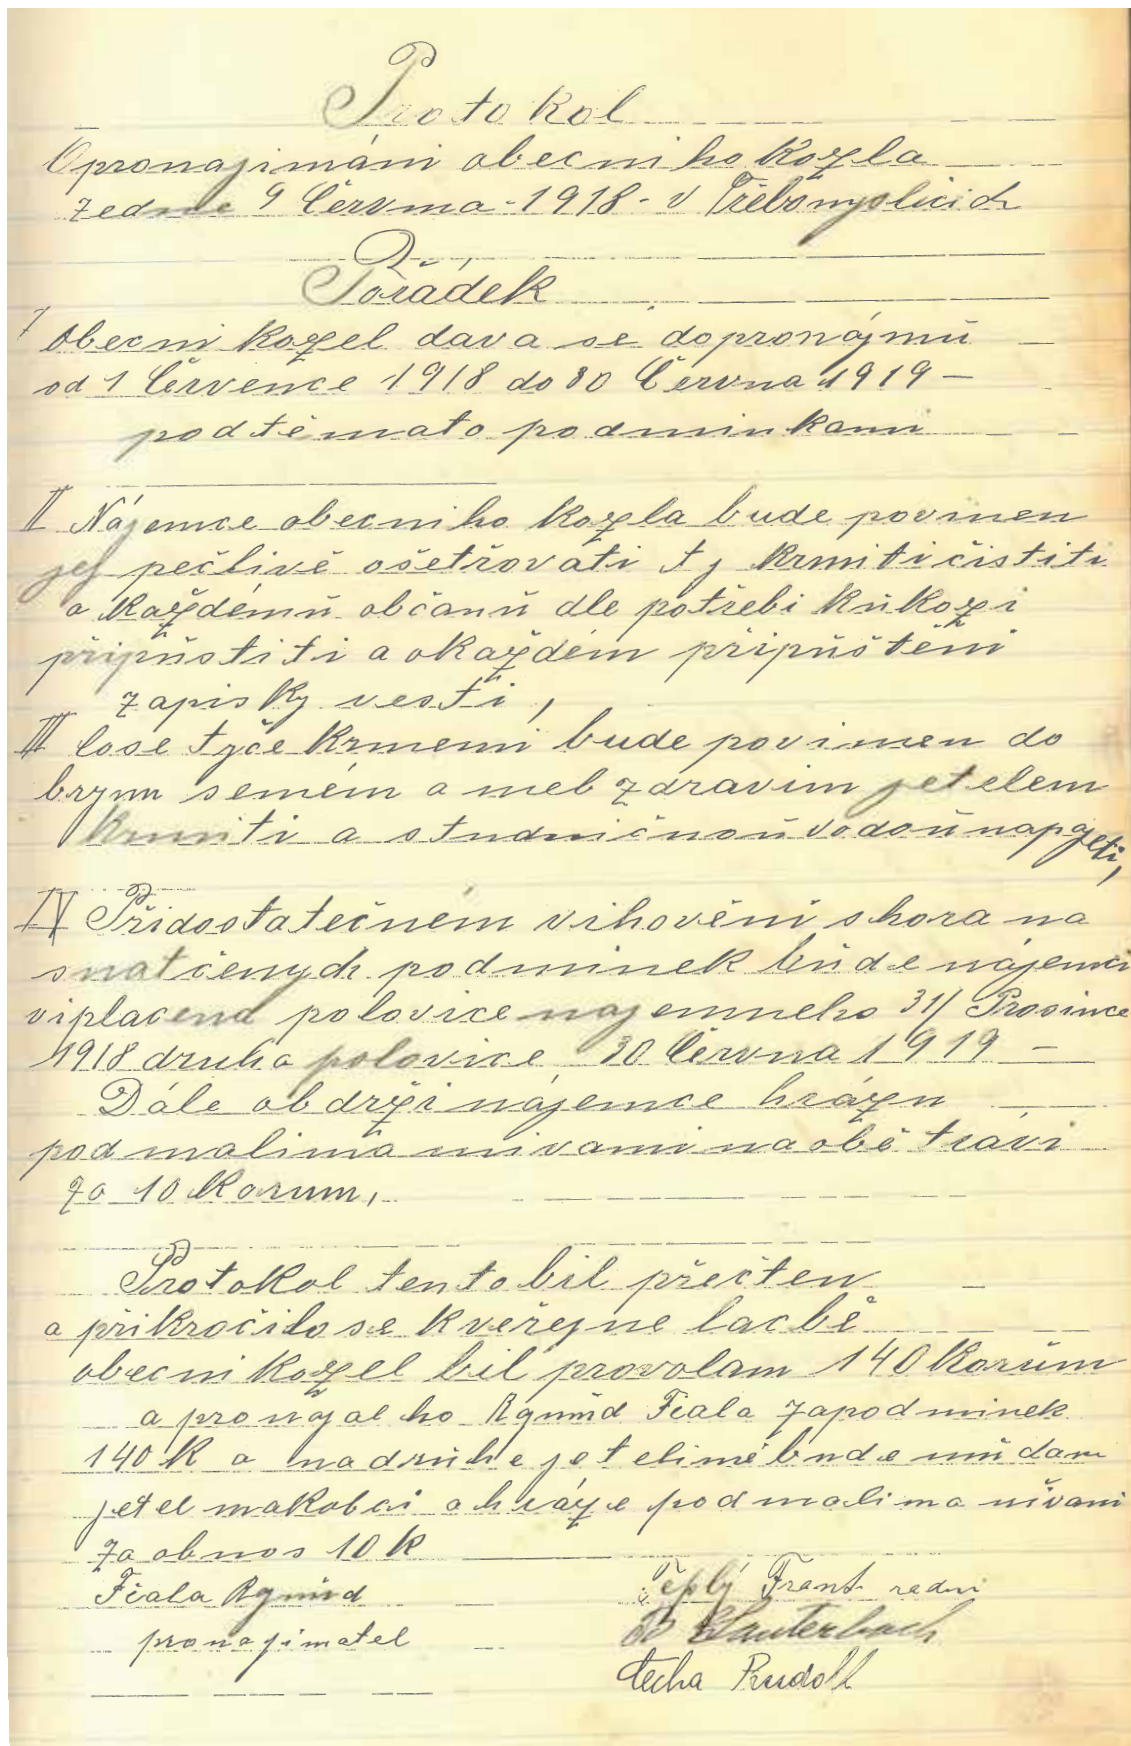 Protokol
O pronajimáni obecniho kozla
ze dne 9 Června - 1918 - v Třebomyslicich
Pořádek
I Obecni kozel dava se do pronájmů
od 1 Července 1918 do 30 Června 1919 —
pod těmato podminkami
II Nájemce obecniho kozla bude povinen
jej pečlivě ošetřovati t j krmiti čistiti
a každémů občanů dle potřebi ků kozi
připůstiti a o každém připůštěni
zapisky vesti,
III Co se tyče krmeni bude povinen do
brym senem a neb zdravim jetelem
krmiti a studničnoů vodoů napajeti,
IV Při dostatečném vihověni shora na
snatčenych podminek bůde nájemci
viplacena polovice najemneho 31/ Prosince
1918 druha polovice 30 Června 1919 —
Dále obdrži nájemce hrázu
pod malima nivami na obě trávi
za 10 Korun,
Protokol tento bil přečten
a přikročilo se k veřejne lacbě
obecni kozel bil provolam 140 Korůn
a pronajal ho Fiala za podminek
140 K a na drůhe jetelině bude můdam
jetel a hráze pod malima nivami
za obnos 10 K
Fiala
pronajimatel
Teplý Frant. radni
Lauterbach
Čecha Rudolf